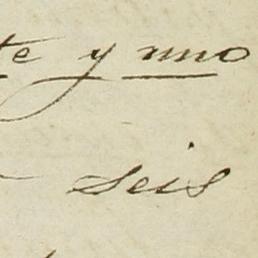 te y uno
seis